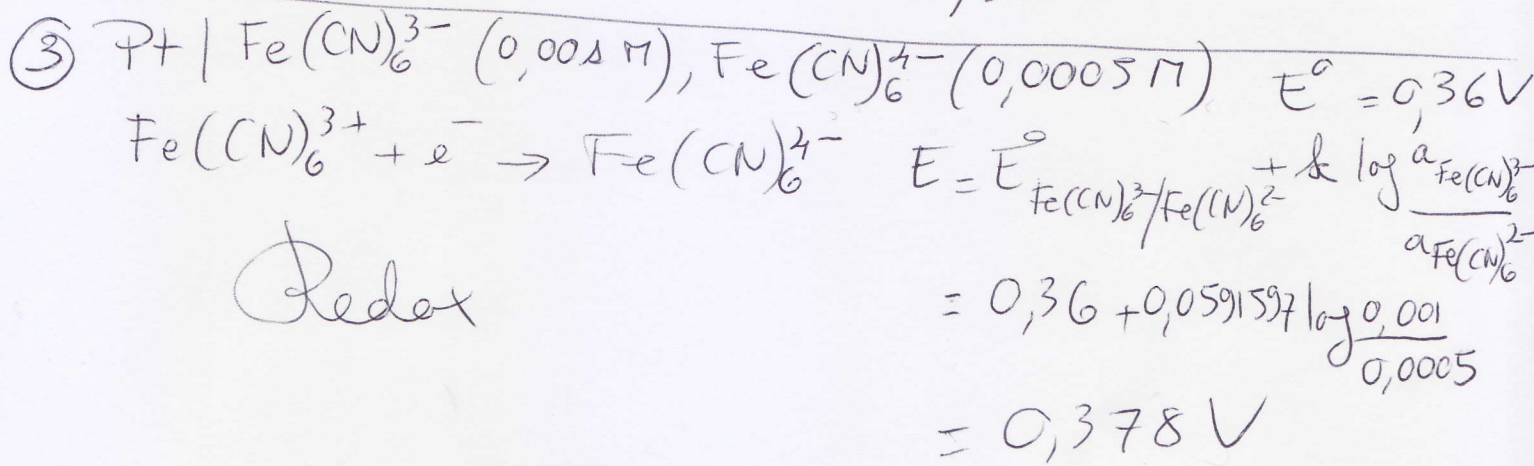 ③ Pt | Fe(CN)₆³⁻ (0,001 M), Fe(CN)₆⁴⁻ (0,0005 M) E° = 0,36 V
Fe(CN)₆³⁺ + e⁻ → Fe(CN)₆⁴⁻ E = E°Fe(CN)₆³⁻/Fe(CN)₆²⁻ + k log aFe(CN)₆³⁻ / aFe(CN)₆²⁻
Redox
= 0,36 + 0,0591597 log 0,001 / 0,0005
= 0,378 V